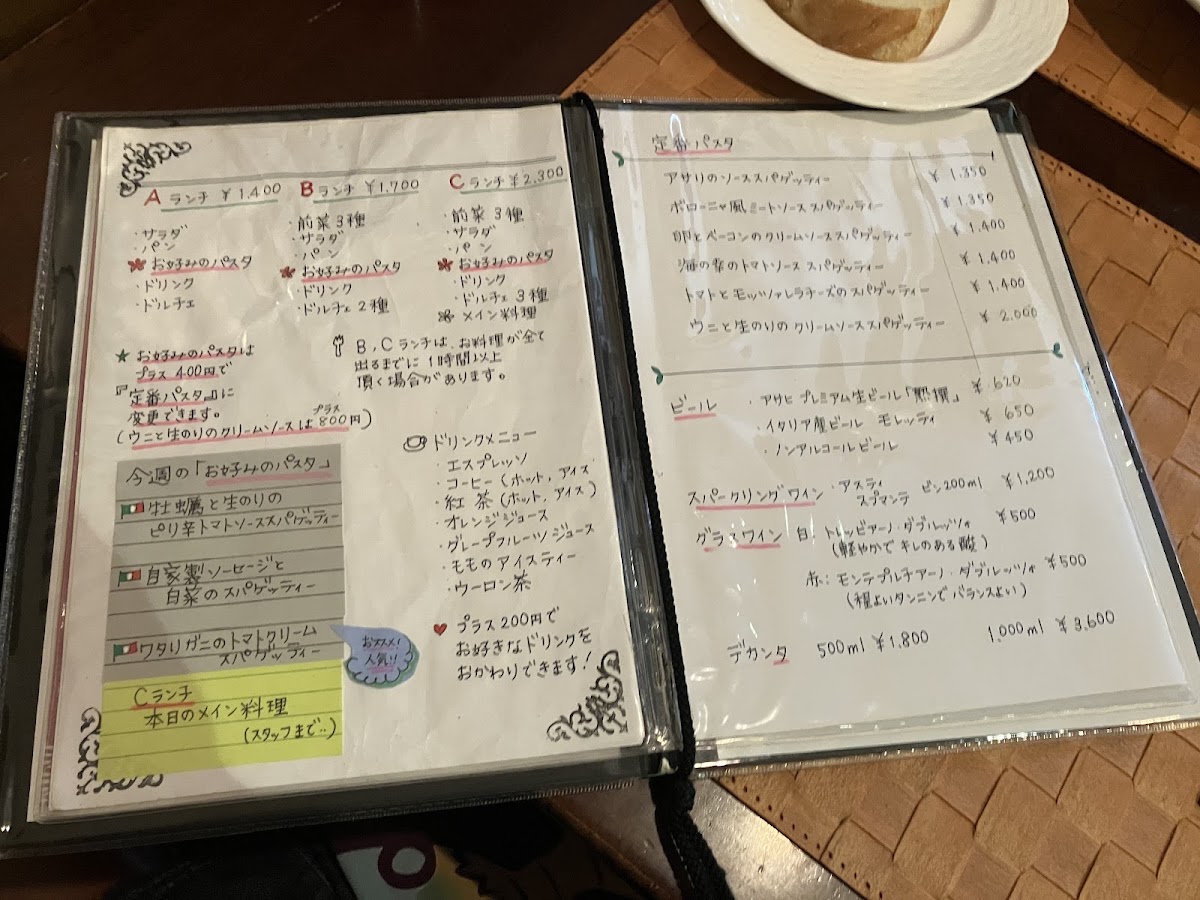 A ランチ ¥1.400
・サラダ
・パン
お好みのパスタ
・ドリンク
・ドルチェ
B ランチ ¥1,700
・前菜3種
・サラダ
・パン
お好みのパスタ
・ドリンク
・ドルチェ 2種
C ランチ ¥2.300
・前菜 3種
・サラダ
・パン
お好みのパスタ
・ドリンク
・ドルチェ 3種
メイン料理
★ お好みのパスタは
プラス 400円で
『定番パスタ』に
変更できます。
(ウニと生のりのクリームソースはプラス800円)
B,Cランチは、お料理が全て
出るまでに 1時間以上
頂く場合があります。
今週の「お好みのパスタ」
牡蠣と生のりの
ピリ辛トマトソーススパゲッティー
自家製ソーセージと
白菜のスパゲッティー
ワタリガニのトマトクリーム
スパゲッティー
おススメ!
人気!!
Cランチ
本日のメイン料理
(スタッフまで‥)
ドリンクメニュー
・エスプレッソ
・コーヒー (ホット, アイス
・紅茶 (ホット, アイス)
・オレンジジュース
・グレープフルーツジュース
・ももの アイスティー
・ウーロン茶
♥ プラス 200円で
お好きなドリンクを
おかわりできます!
定番パスタ
アサリのソーススパゲッティー ¥ 1,350
ボローニャ風ミートソーススパゲッティー ¥ 1,350
卵とベーコンのクリームソーススパゲッティー ¥ 1.400
海の幸のトマトソース スパゲッティー ¥ 1,400
トマトとモッツァレラチーズのスパゲッティー ¥ 1.400
ウニと生のりの クリームソーススパゲッティー ¥ 2.000
ビール ・アサヒ プレミアム生ビール「熟撰」 ¥ 620
・イタリア産ビール モレッティ ¥ 650
・ノンアルコールビール ¥ 450
スパークリングワイン ・アスティ スプマンテ ビン200ml ¥1,200
グラスワイン 白: トレッビアーノ・ダブルッツォ ¥500
(軽やかで キレのある酸)
赤: モンテプルチアーノ・ダブルッツォ ¥500
(程よいタンニンで バランスよい)
デカンタ 500ml ¥1,800 1,000ml ¥3,600